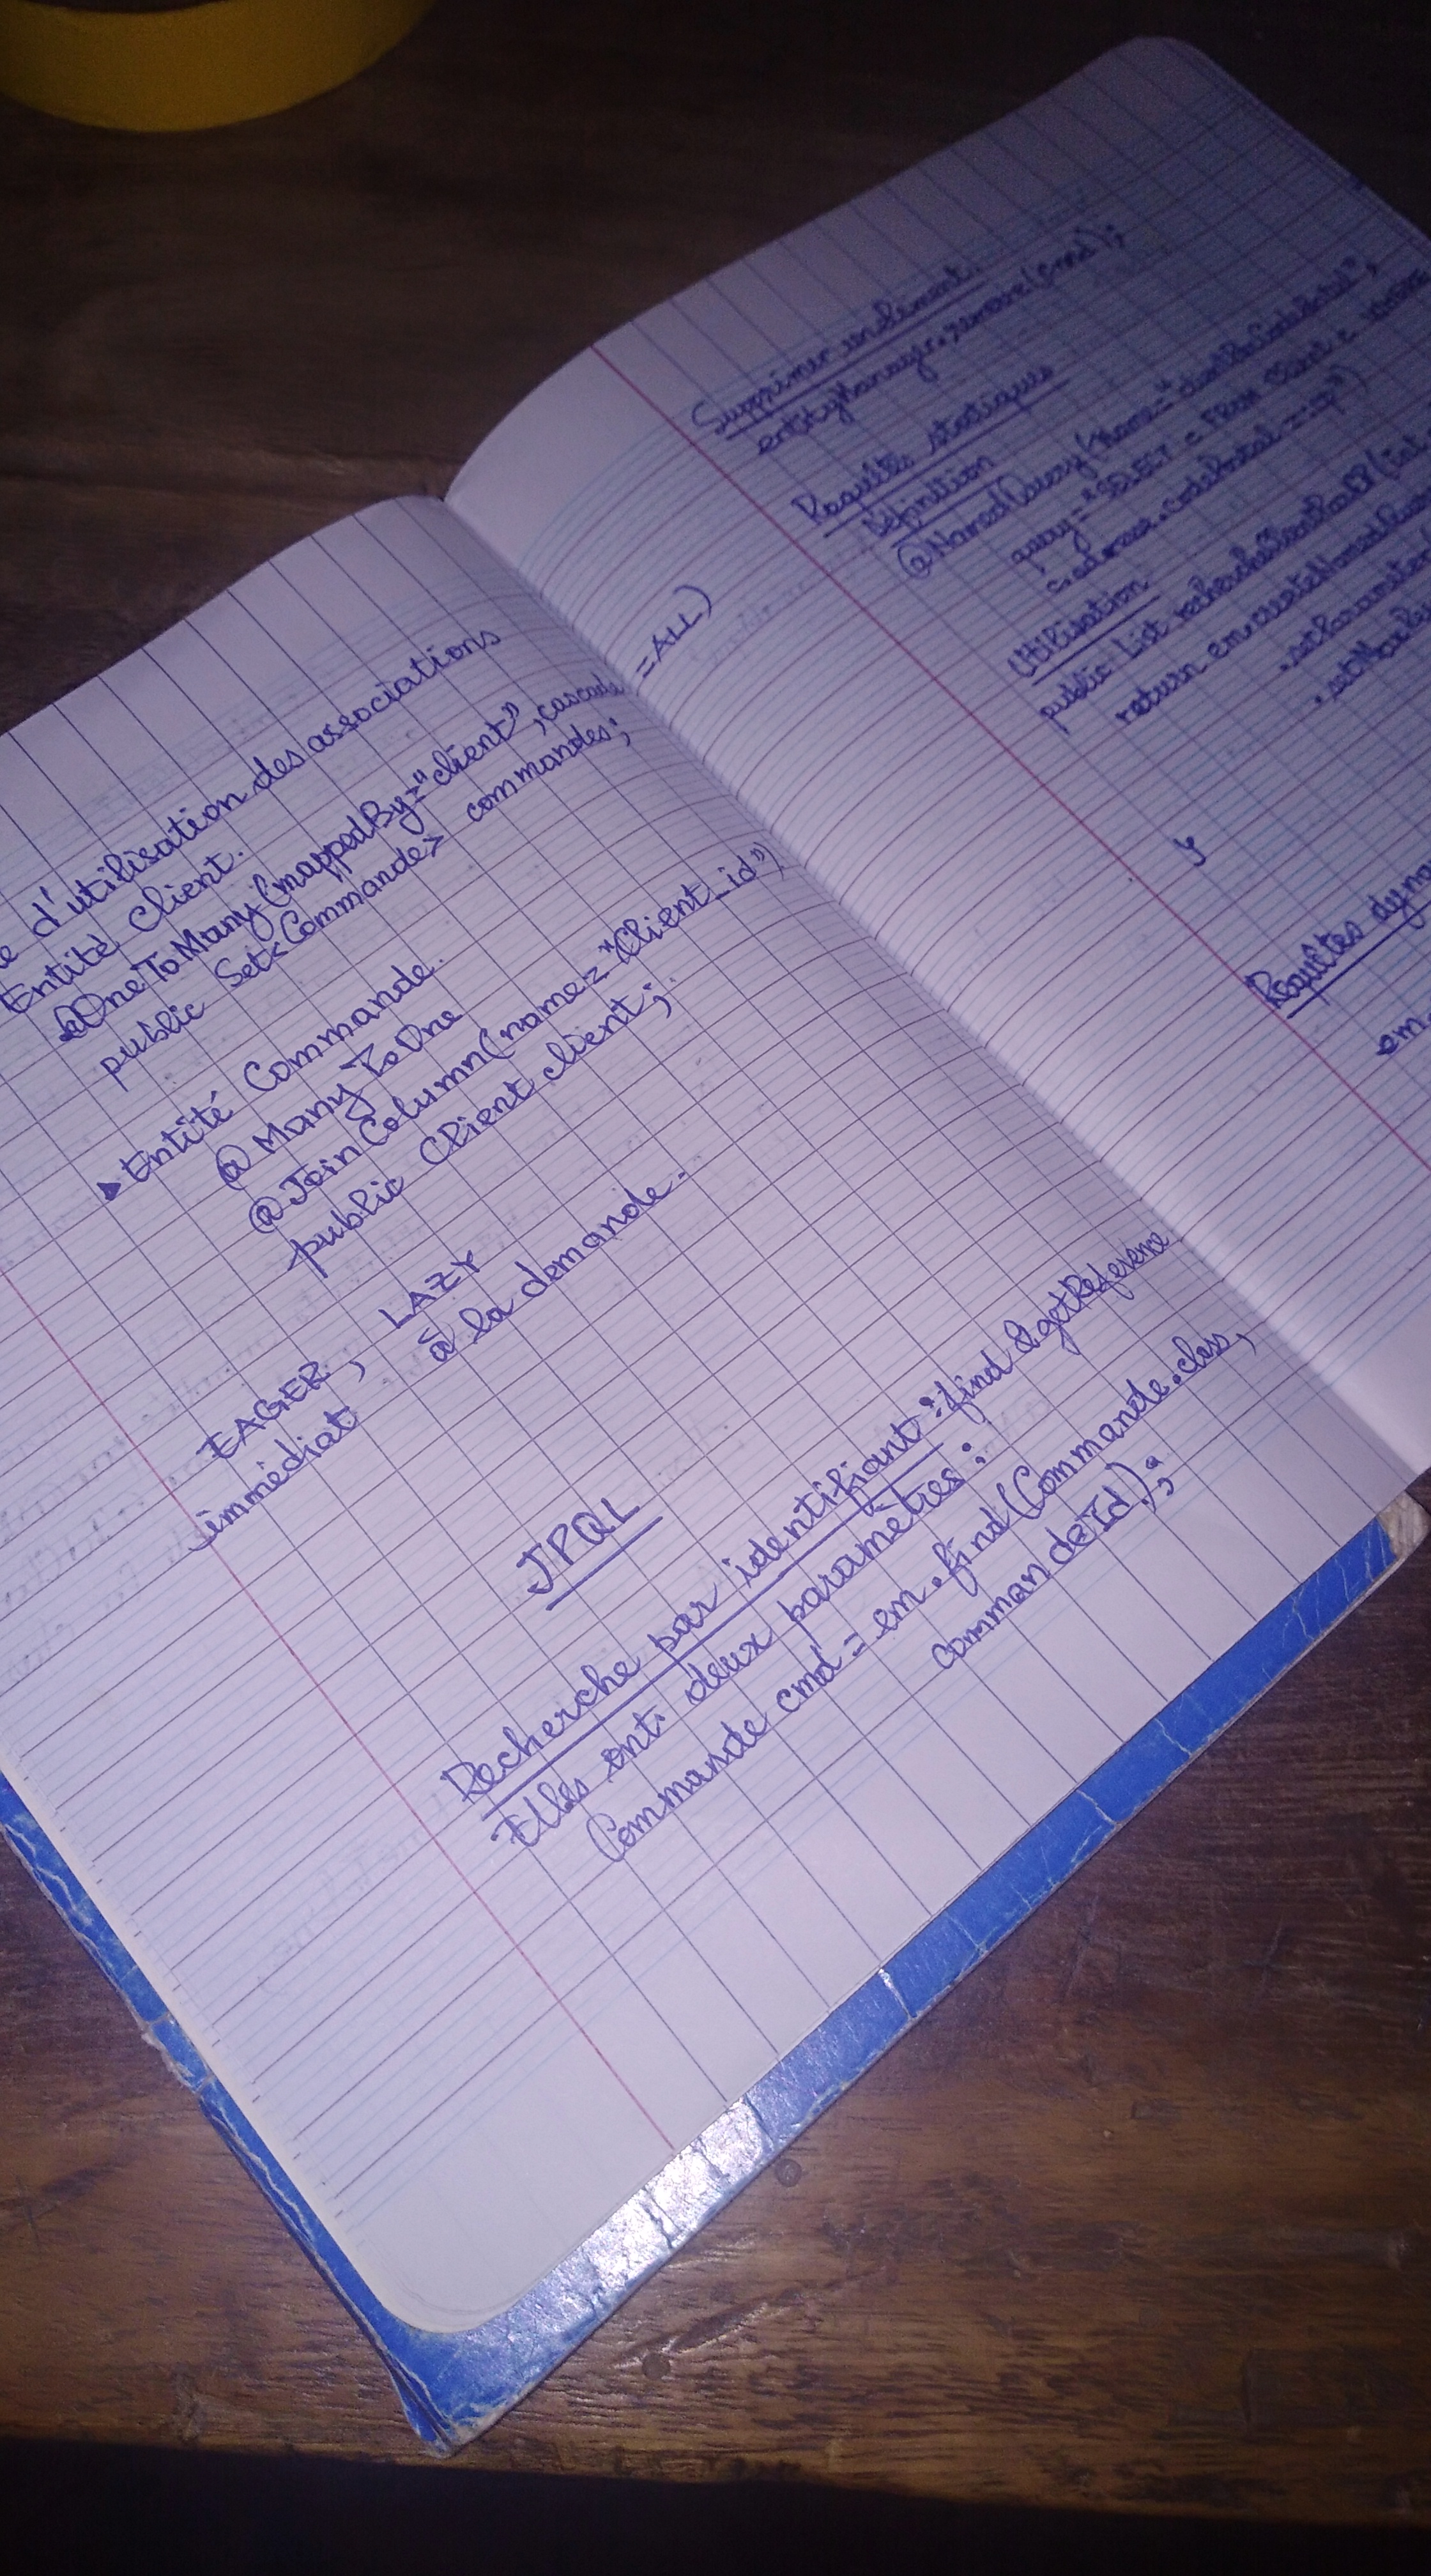 d'utilisation des associations
Entité Client.
@OneToMany(mappedBy="client", cascade =ALL)
public Set<Commande> commandes;
▸ Entité Commande.
@ManyToOne
@JoinColumn(name="Client_id")
public Client client;
EAGER, LAZY
immédiat à la demande.
JPQL
Recherche par identifiant : find & getReference
Elles ont deux paramètres :
Commande cmd = em.find(Commande.class,
commandeId);
Supprimer un élément.
entityManager.remove(cmd);
statiques
Définition
@NamedQuery(name=
query="SELECT c FROM Client c
c.adresse.codePostal = :cp")
Utilisation
public List
return em.
Requêtes
em.